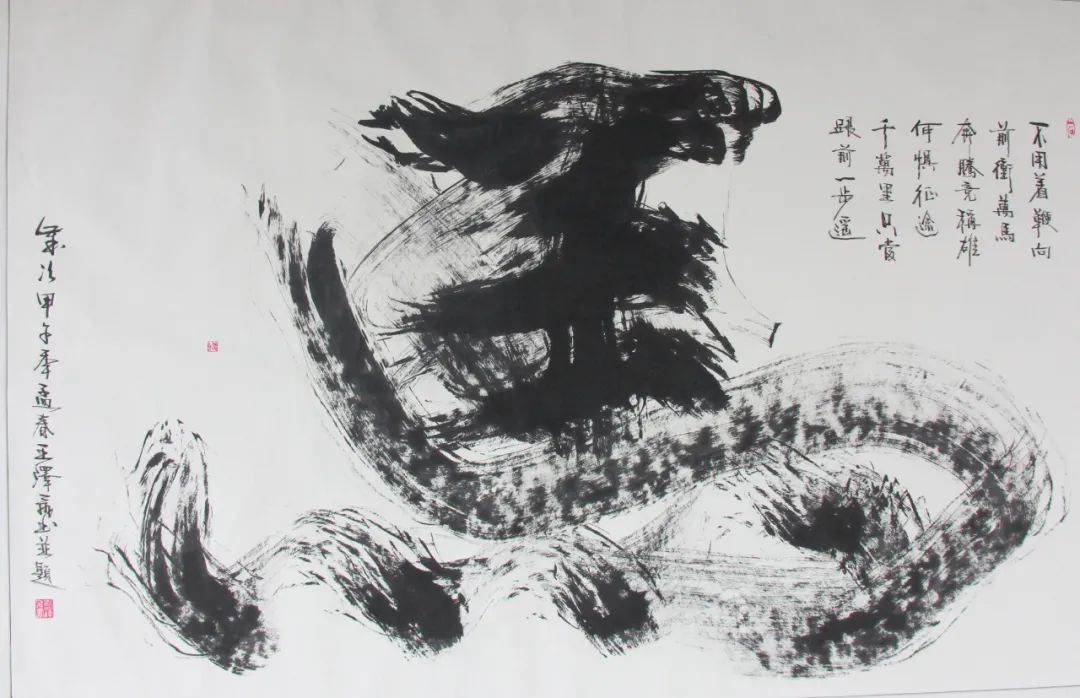 不用着鞭向
前衝萬馬
奔騰竞稱雄
何惧征途
千萬里只當
跟前一步遥
歲次甲午年孟春王澤 並題